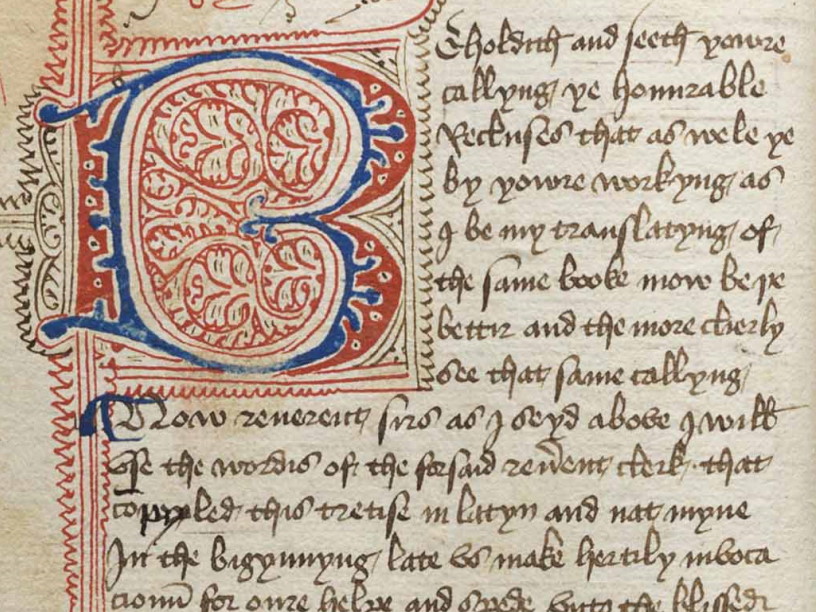 Beholdith and seeth yowre
callyng ye honurable
Recluses that as wele ye
by yowre workyng as
I be my translatyng of
the same booke mow be þe
bettir and the more clierly
see that same callyng
Now reuerent sirs as I seyd aboue I will
Vse the wordis of the forsaid reuent clerk that
compyled this tretise in latyn and nat myne
In the bigynnyng late vs make hertily inuoca
cioun for oure helpe and spede vnto the blissed